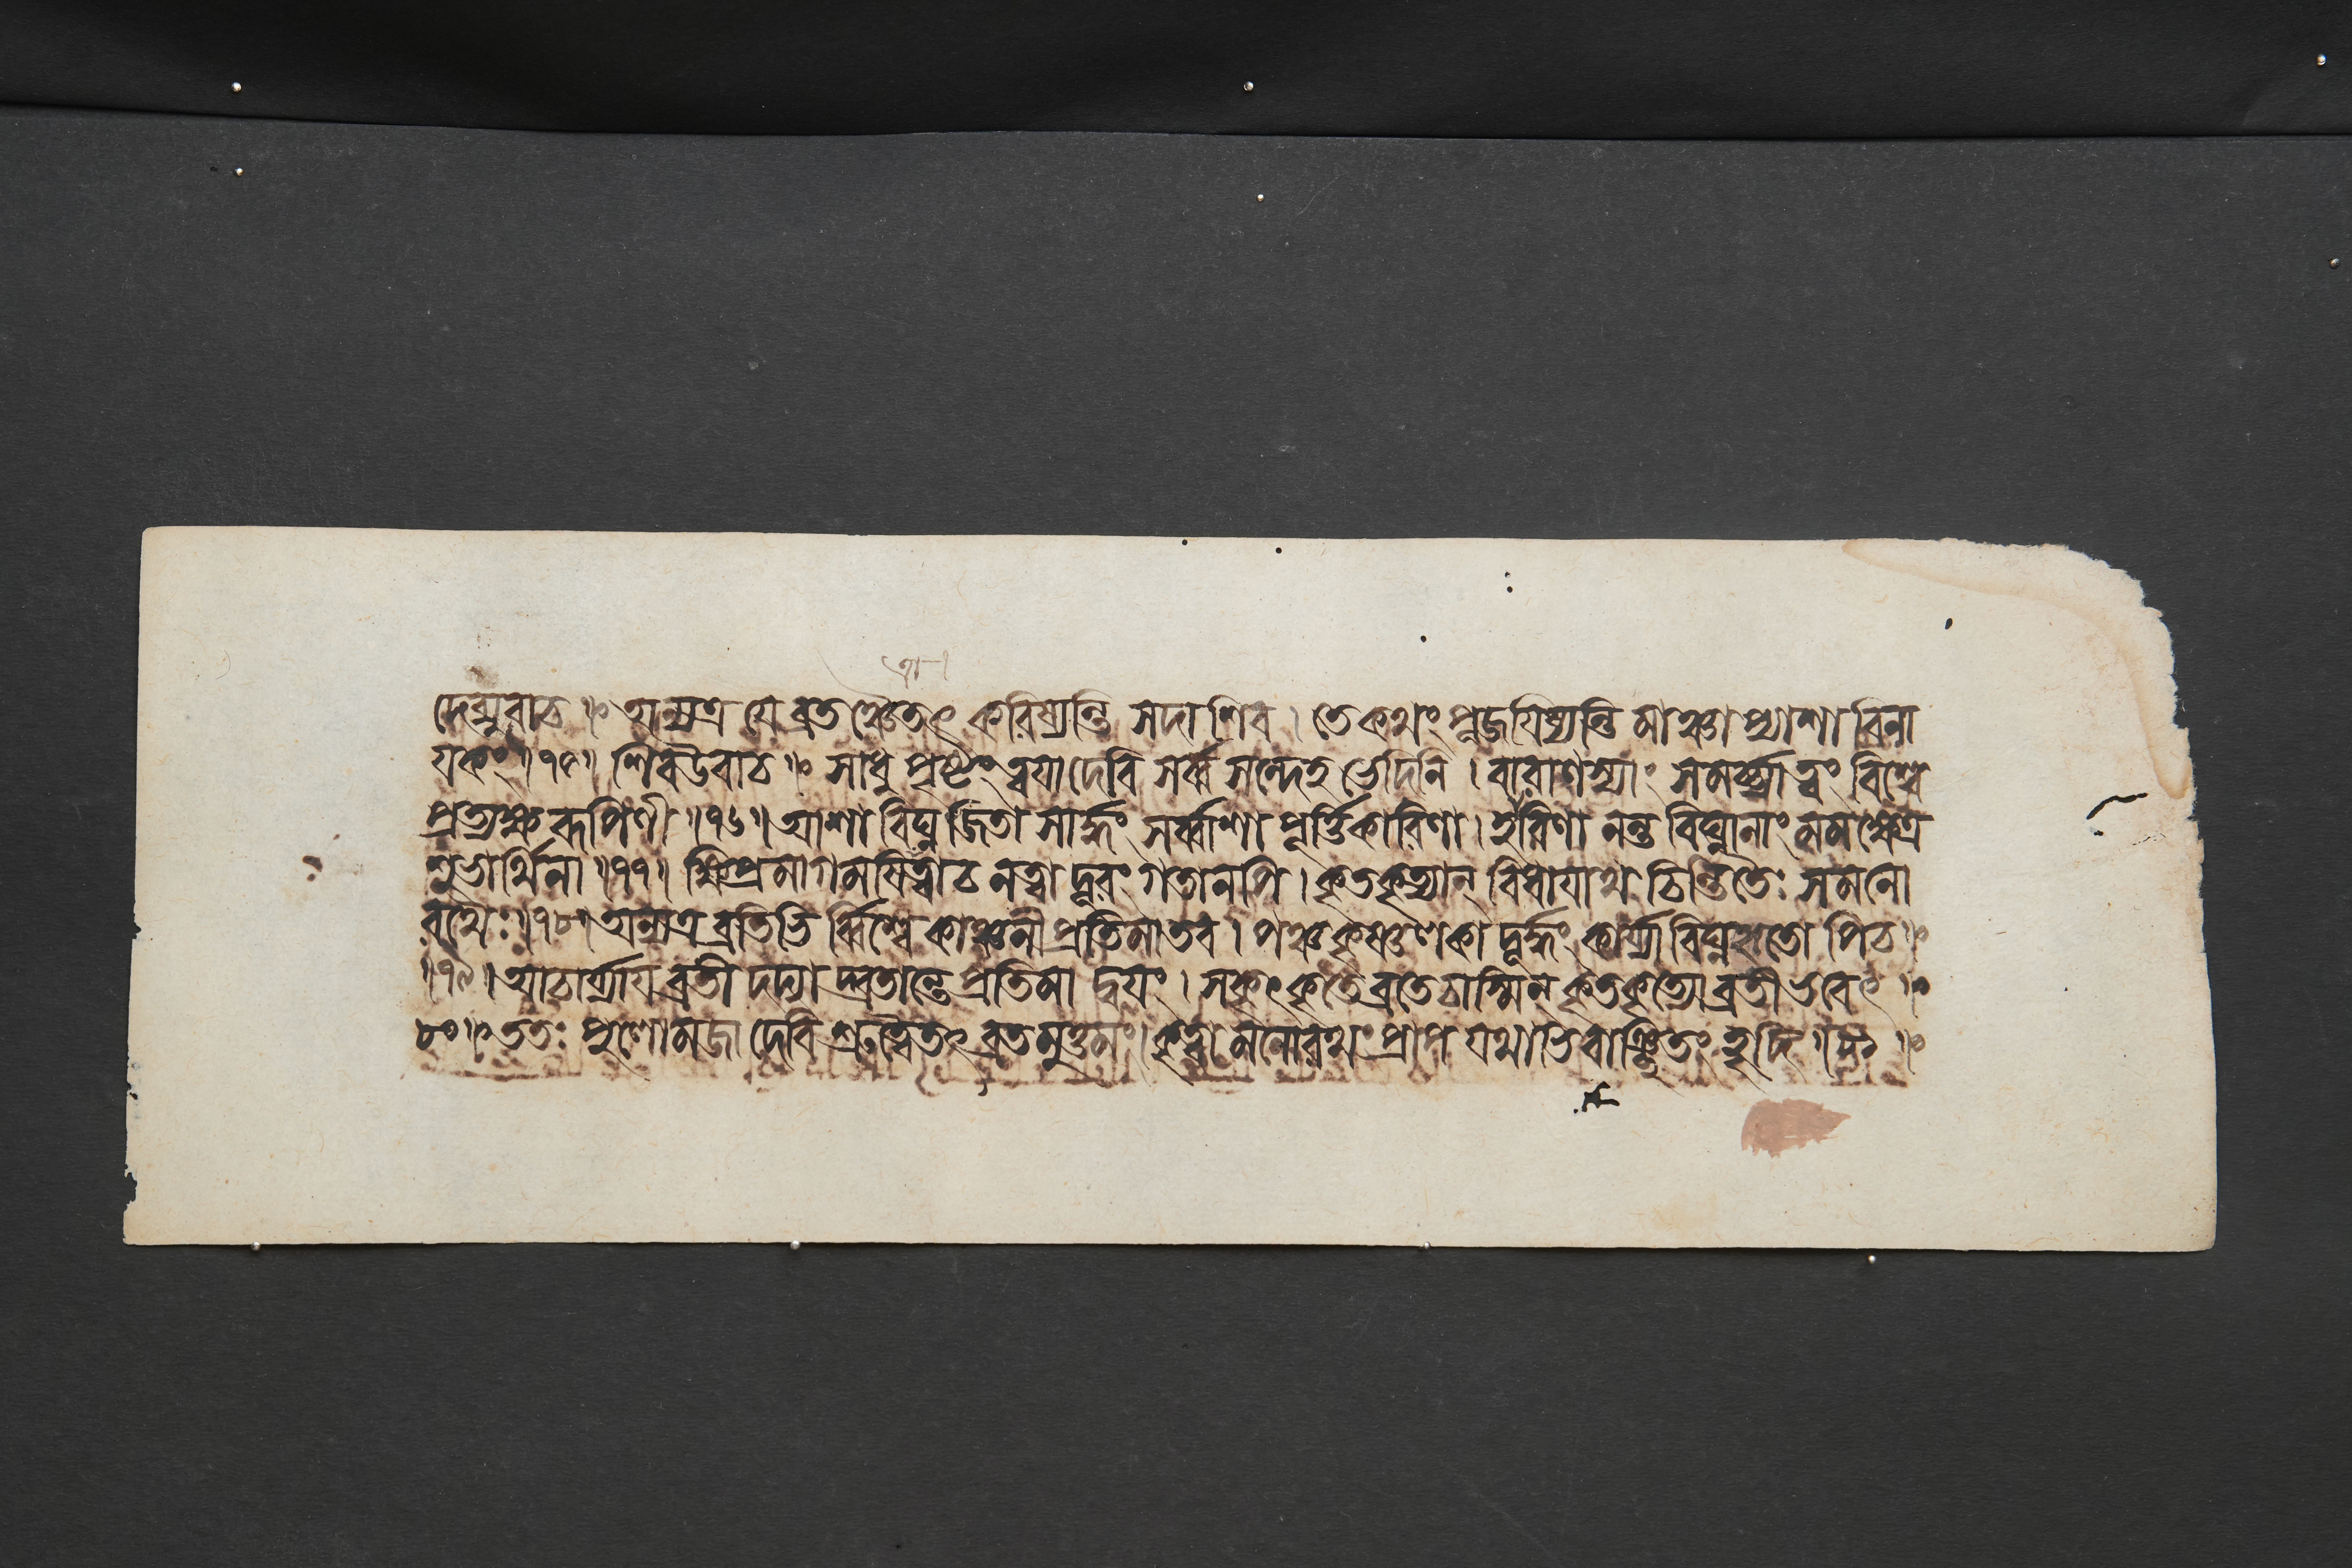 দেব্যুবাচ ॥ অন্যত্র যে ব্রতঞ্চৈতৎ করিষ্যন্তি সদাশিব । তে কথং পূজযিষ্যন্তি মাঞ্চাপ্যাশাবিনা
যকং ॥ ৭৫ ॥ শিবউবাচ ॥ সাধু পৃষ্টং ত্বযাদেবি সর্ব্ব সন্দেহ ভেদিনি । বারাণস্যাং সমর্চ্চ্যা ত্বং বিশ্বে
প্রত্যক্ষরূপিণী ॥ ৭৬ ॥ আশা বিঘ্নজিতা সার্দ্ধং সর্ব্বাশা পূর্ত্তিকারিণা । হরিণা নন্ত বিঘ্নানাং মমক্ষেত্র
শুভার্থিনা ॥ ৭৭ ॥ ক্ষিপ্রমাগমযিত্বাচ নত্বা দূরং গতানপি । কৃতকৃত্যান্ বিধাযাথ চিন্তিতৈঃ সমনো
রথৈঃ ॥ ৭৮ ॥ অন্যত্র ব্রতিভি র্ব্বিশ্বে কাঞ্চনী প্রতিমাতব । পঞ্চকৃষ্ণণকা দূর্দ্ধং কার্য্যা বিঘ্নহৃতো পিচ ॥
॥ ৭৯ ॥ আচার্য্যায ব্রতী দদ্যা দ্ব্রতান্তে প্রতিমা দ্বযং । সকৃৎকৃতে ব্রতেচাস্মিন্ কৃতকৃত্যো ব্রতী ভবেৎ ॥
৮০ ॥ ততঃ পুণোমজা দেবি শ্রুত্বৈতৎ ব্রতমুত্তমং । কৃত্বা মনোরথং প্রাপ যথাভিবাঞ্ছিতং হৃদি ॥ ৮১ ॥